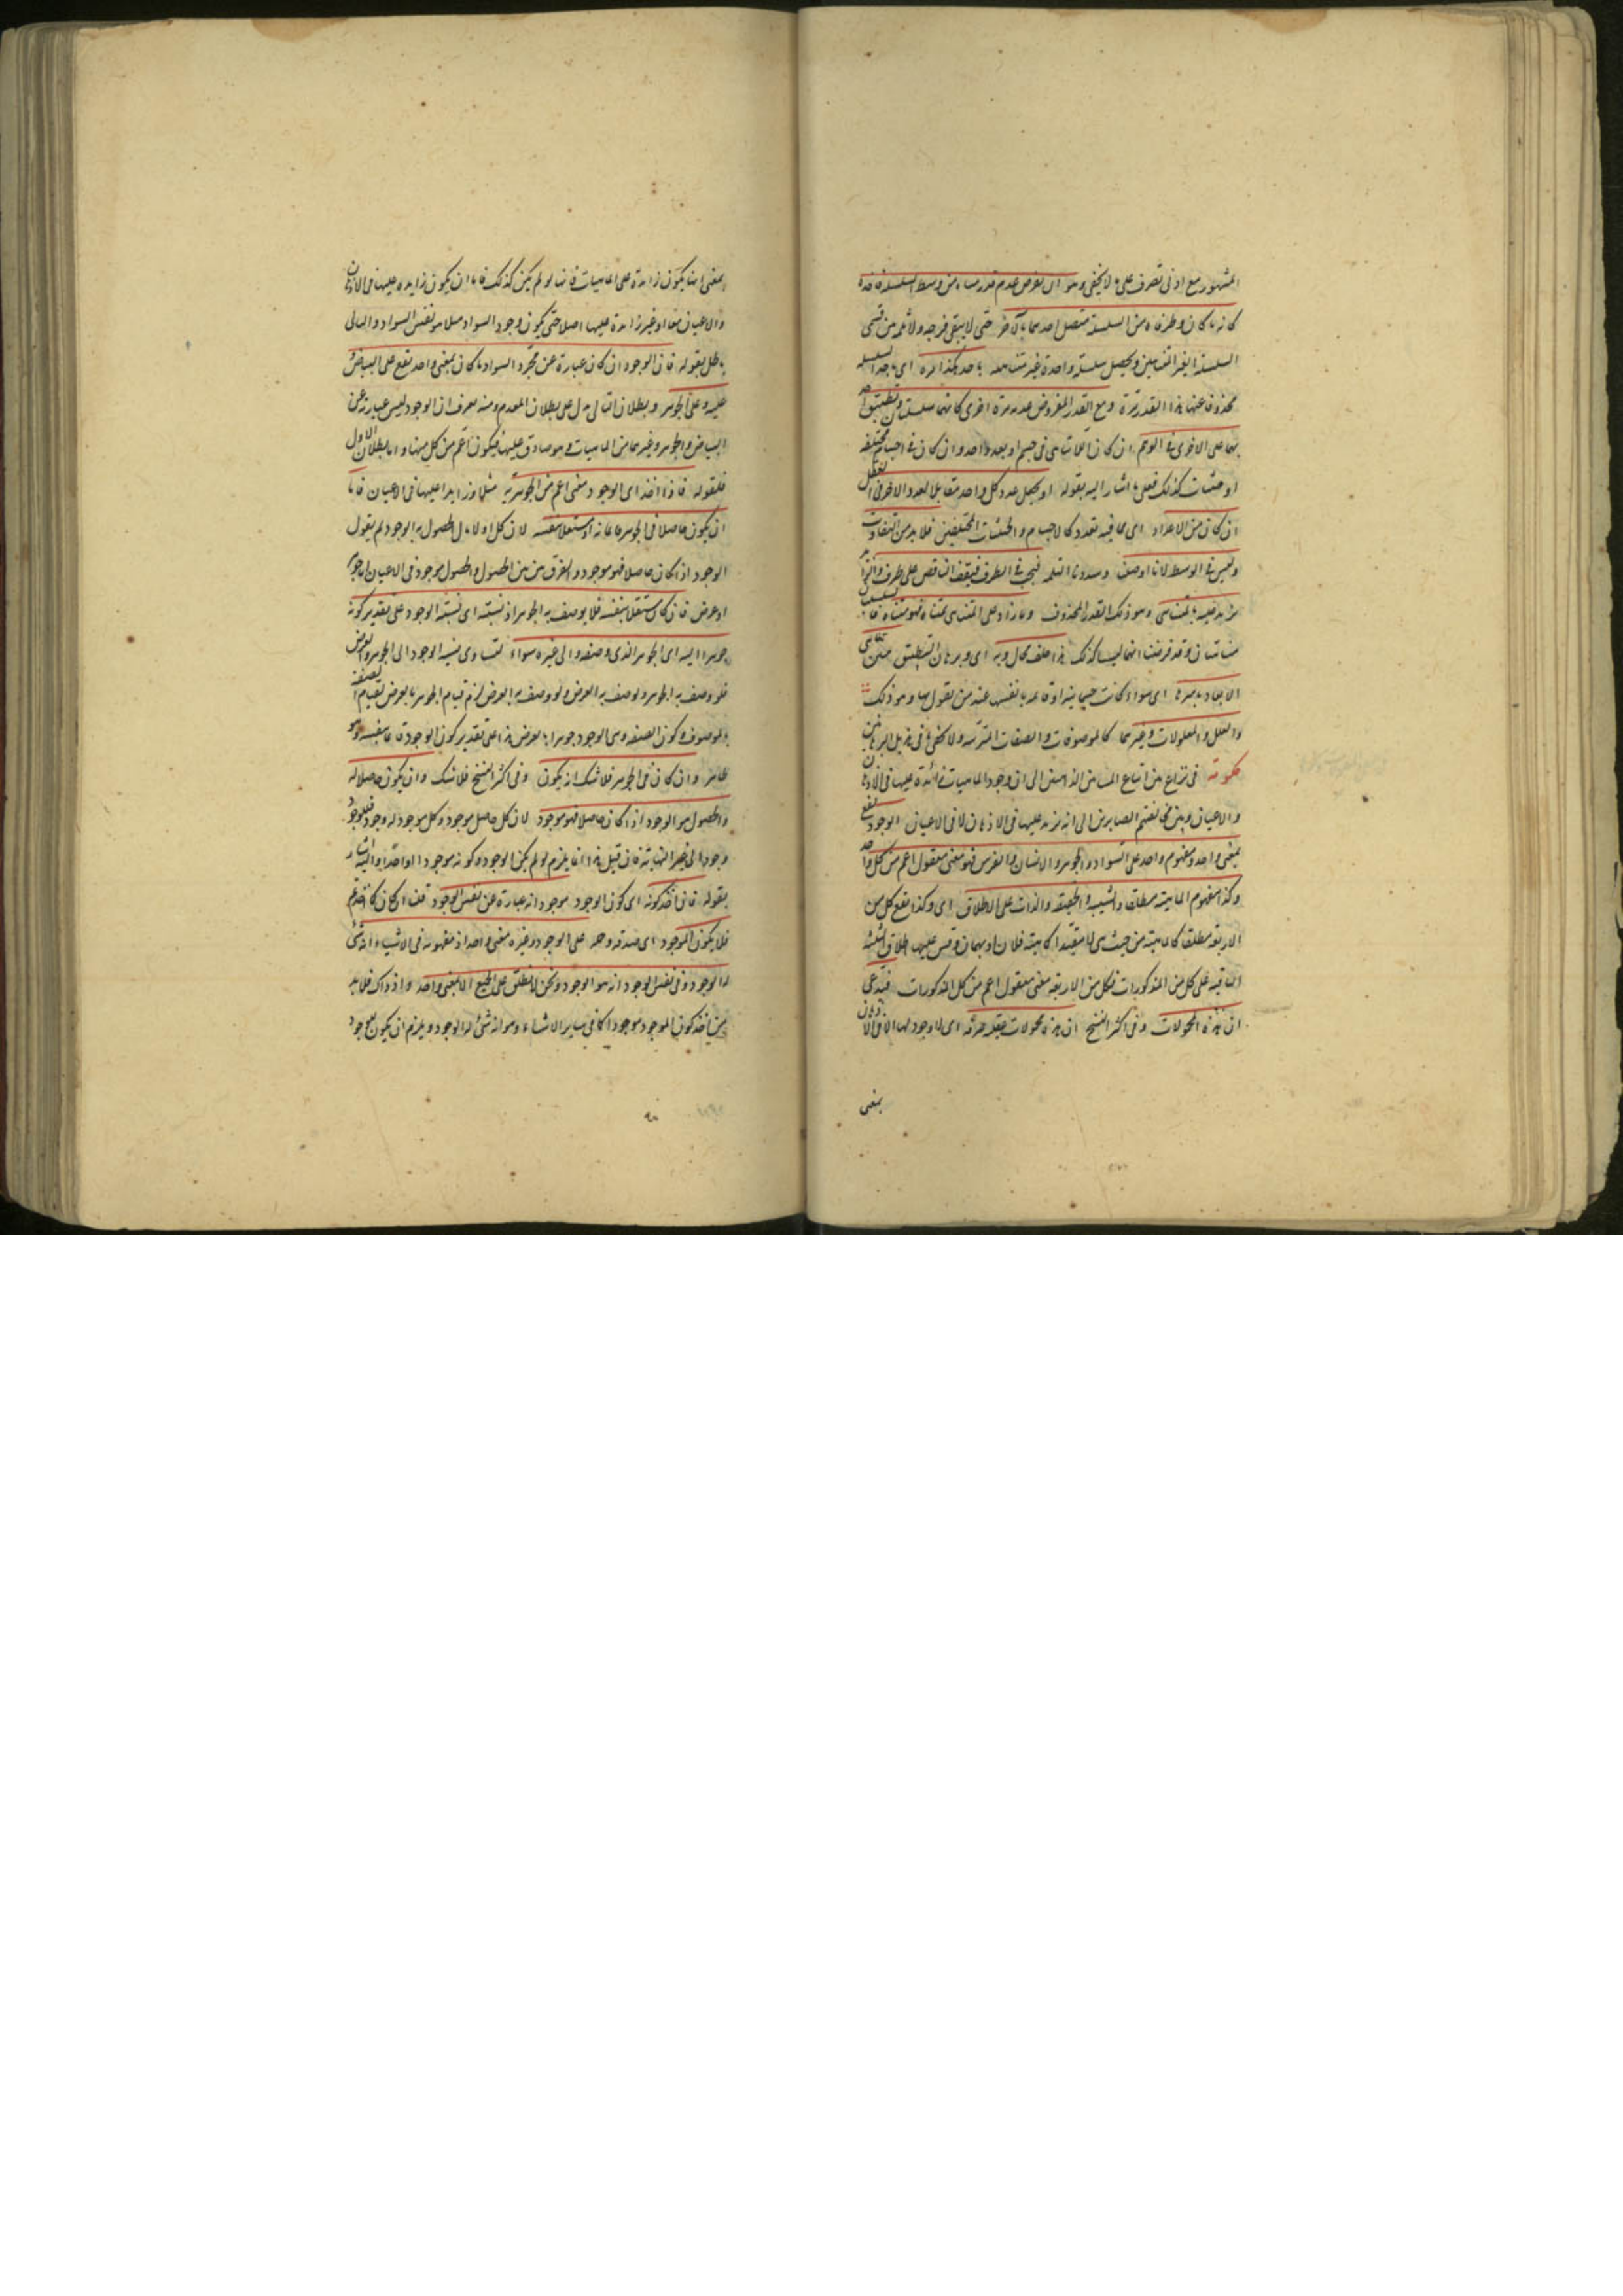 المشهور مع ادنى تصرف على ما لا يخفى وهو ان يفرض عدم قدر متناه من وسط السلسلة فاخذه
كانه ما كان وطرفاه من السلسلة متصل احدهما بالآخر حتى لا يبقى فرجه ولا ثلمه من قسمى
السلسلة الغير المتناهيين ويحصل سلسلة واحدة غير متناهيه ناخذ هكذا مرة اى ناخذ السلسلة
محذوفا عنها هذا القدر مرة ومع القدر المفروض عدمه مرة اخرى كانهما سلسلتان ونطبق احد
بهما على الاخرى فى الوهم ان كان اللاتناهى فى جسم او بعد واحد وان كان فى اجسام مختلفه
او حيثيات كذلك فعلى ما اشار اليه بقوله او نجعل عدد كل واحد مقابلا لعدد الاخر فى العقل
ان كان من الاعداد اى مما فيه تعدد كالاجسام والحيثيات المختلفين فلا بد من التفاوت
وليس فى الوسط لانا اوصلناه وسددنا الثلمه فيجب فى الطرف فيقف الناقص على طرف والزائد
يزيد عليه بالمتناهى وهو ذلك القدر المحذوف وما زاد على المتناهى بمتناه فهو متناه فالسلسلتان
متناهيتان وقد فرضنا انهما ليستا كذلك هذا خلف محال وبه اى وببرهان التطبيق يتبين تناهى
الابعاد باسرها اى سواء كانت جسمانية او قائمه بانفسها عند من يقول بها وهو ذلك
والعلل والمعلولات وغيرهما كالموصوفات والصفات المترتبه ولا يخفى ما فى تذييل البرهانين
حكومة فى نزاع بين اتباع المشائين الذاهبين الى ان وجود الماهيات زائدة عليها فى الاذهان
والاعيان وبين مخالفتهم الصايرين الى انه يزيد عليها فى الاذهان لا فى الاعيان الوجود يقع
بمعنى واحد ومفهوم واحد على السواد والجوهر والانسان والفرس فهو معنى معقول اعم من كل واحد
وكذا مفهوم الماهية مطلقا والشيئية والحقيقة والذات على الاطلاق اى وكذا يقع كل من
الاربعة مطلقا كالماهية من حيث هى لا مقيدا كماهية فلان او بهمان وقس عليها اطلاق الثلثة
الباقية على كل من المذكورات فكل من الاربعة معنى معقول اعم من كل المذكورات فندعى
ان هذه المحمولات وفى اكثر النسخ ان هذه محمولات عقلية صرفه اى لا وجود لها الا فى الاذهان
بمعنى
بمعنى انها يكون زائدة على الماهيات فانها لو لم يكن كذلك فاما ان يكون زايده عليها فى الاذهان
والاعيان معا او غير زايدة عليها اصلا حتى يكون وجود السواد مثلا هو نفس السواد والتالى
باطل بقوله فان الوجود ان كان عبارة عن مجرد السواد ما كان بمعنى واحد يقع على البياض
عليه وعلى الجوهر وبطلان التالى يدل على بطلان المقدم ومنه يعرف ان الوجود ليس عبارة عن
البياض والجوهر وغيرهما من الماهيات وهو صادق عليها فيكون اعم من كل منها واما بطلان الاول
فلقوله فاذا اخذ اى الوجود معنى اعم من الجوهرية مثلا وزايدا عليها فى الاعيان فاما
ان يكون حاصلا فى الجوهر قائما به او مستقلا بنفسه لان كل اولا له الحصول به الوجود لم يقول
الوجود اذا كان حاصلا فهو موجود والفرق بين الحصول والحصول موجود فى الاعيان اما جوهر
او عرض فان كان مستقلا بنفسه فلا يوصف به الجوهر اذ نسبته اى نسبة الوجود على تقدير كونه
جوهرا اليه اى الجوهر الذى وصفه والى غيره سواء لتساوى نسبة الوجود الى الجوهر والعرض
فلو وصف به الجوهر لوصف به العرض ولو وصف به العرض لزم قيام الجوهر بالعرض لقيام الصفة
بالموصوف وكون الصفه وهى الوجود جوهرا بالعرض هذا على تقدير كون الوجود قائما بنفسه وهو
ظاهر وان كان فى الجوهر فلا شك انه يكون وفى اكثر النسخ فلا شك وان يكون حاصلا له
والحصول هو الوجود اذا كان حاصلا فهو موجود لان كل حاصل موجود وكل موجود له وجود فللوجود
وجود الى غير النهاية فان قيل هذا انما يلزم لو لم يكن الوجود وكونه موجودا واحدا واليه اشار
بقوله فان اخذ كونه اى كون الوجود موجودا انه عبارة عن نفس الوجود قلنا ان كان كما اخذتم
فلا يكون الموجود اى صدقه وحمله على الوجود وغيره بمعنى واحد اذ مفهومه فى الاشياء انه شئ
له الوجود وفى نفس الوجود انه هو الوجود ونحن لا نطلق على الجميع الا بمعنى واحد واذ ذاك فلا بد
من اخذ كون الموجود موجودا كما فى ساير الاشياء وهو انه شئ له الوجود ويلزم ان يكون للوجود